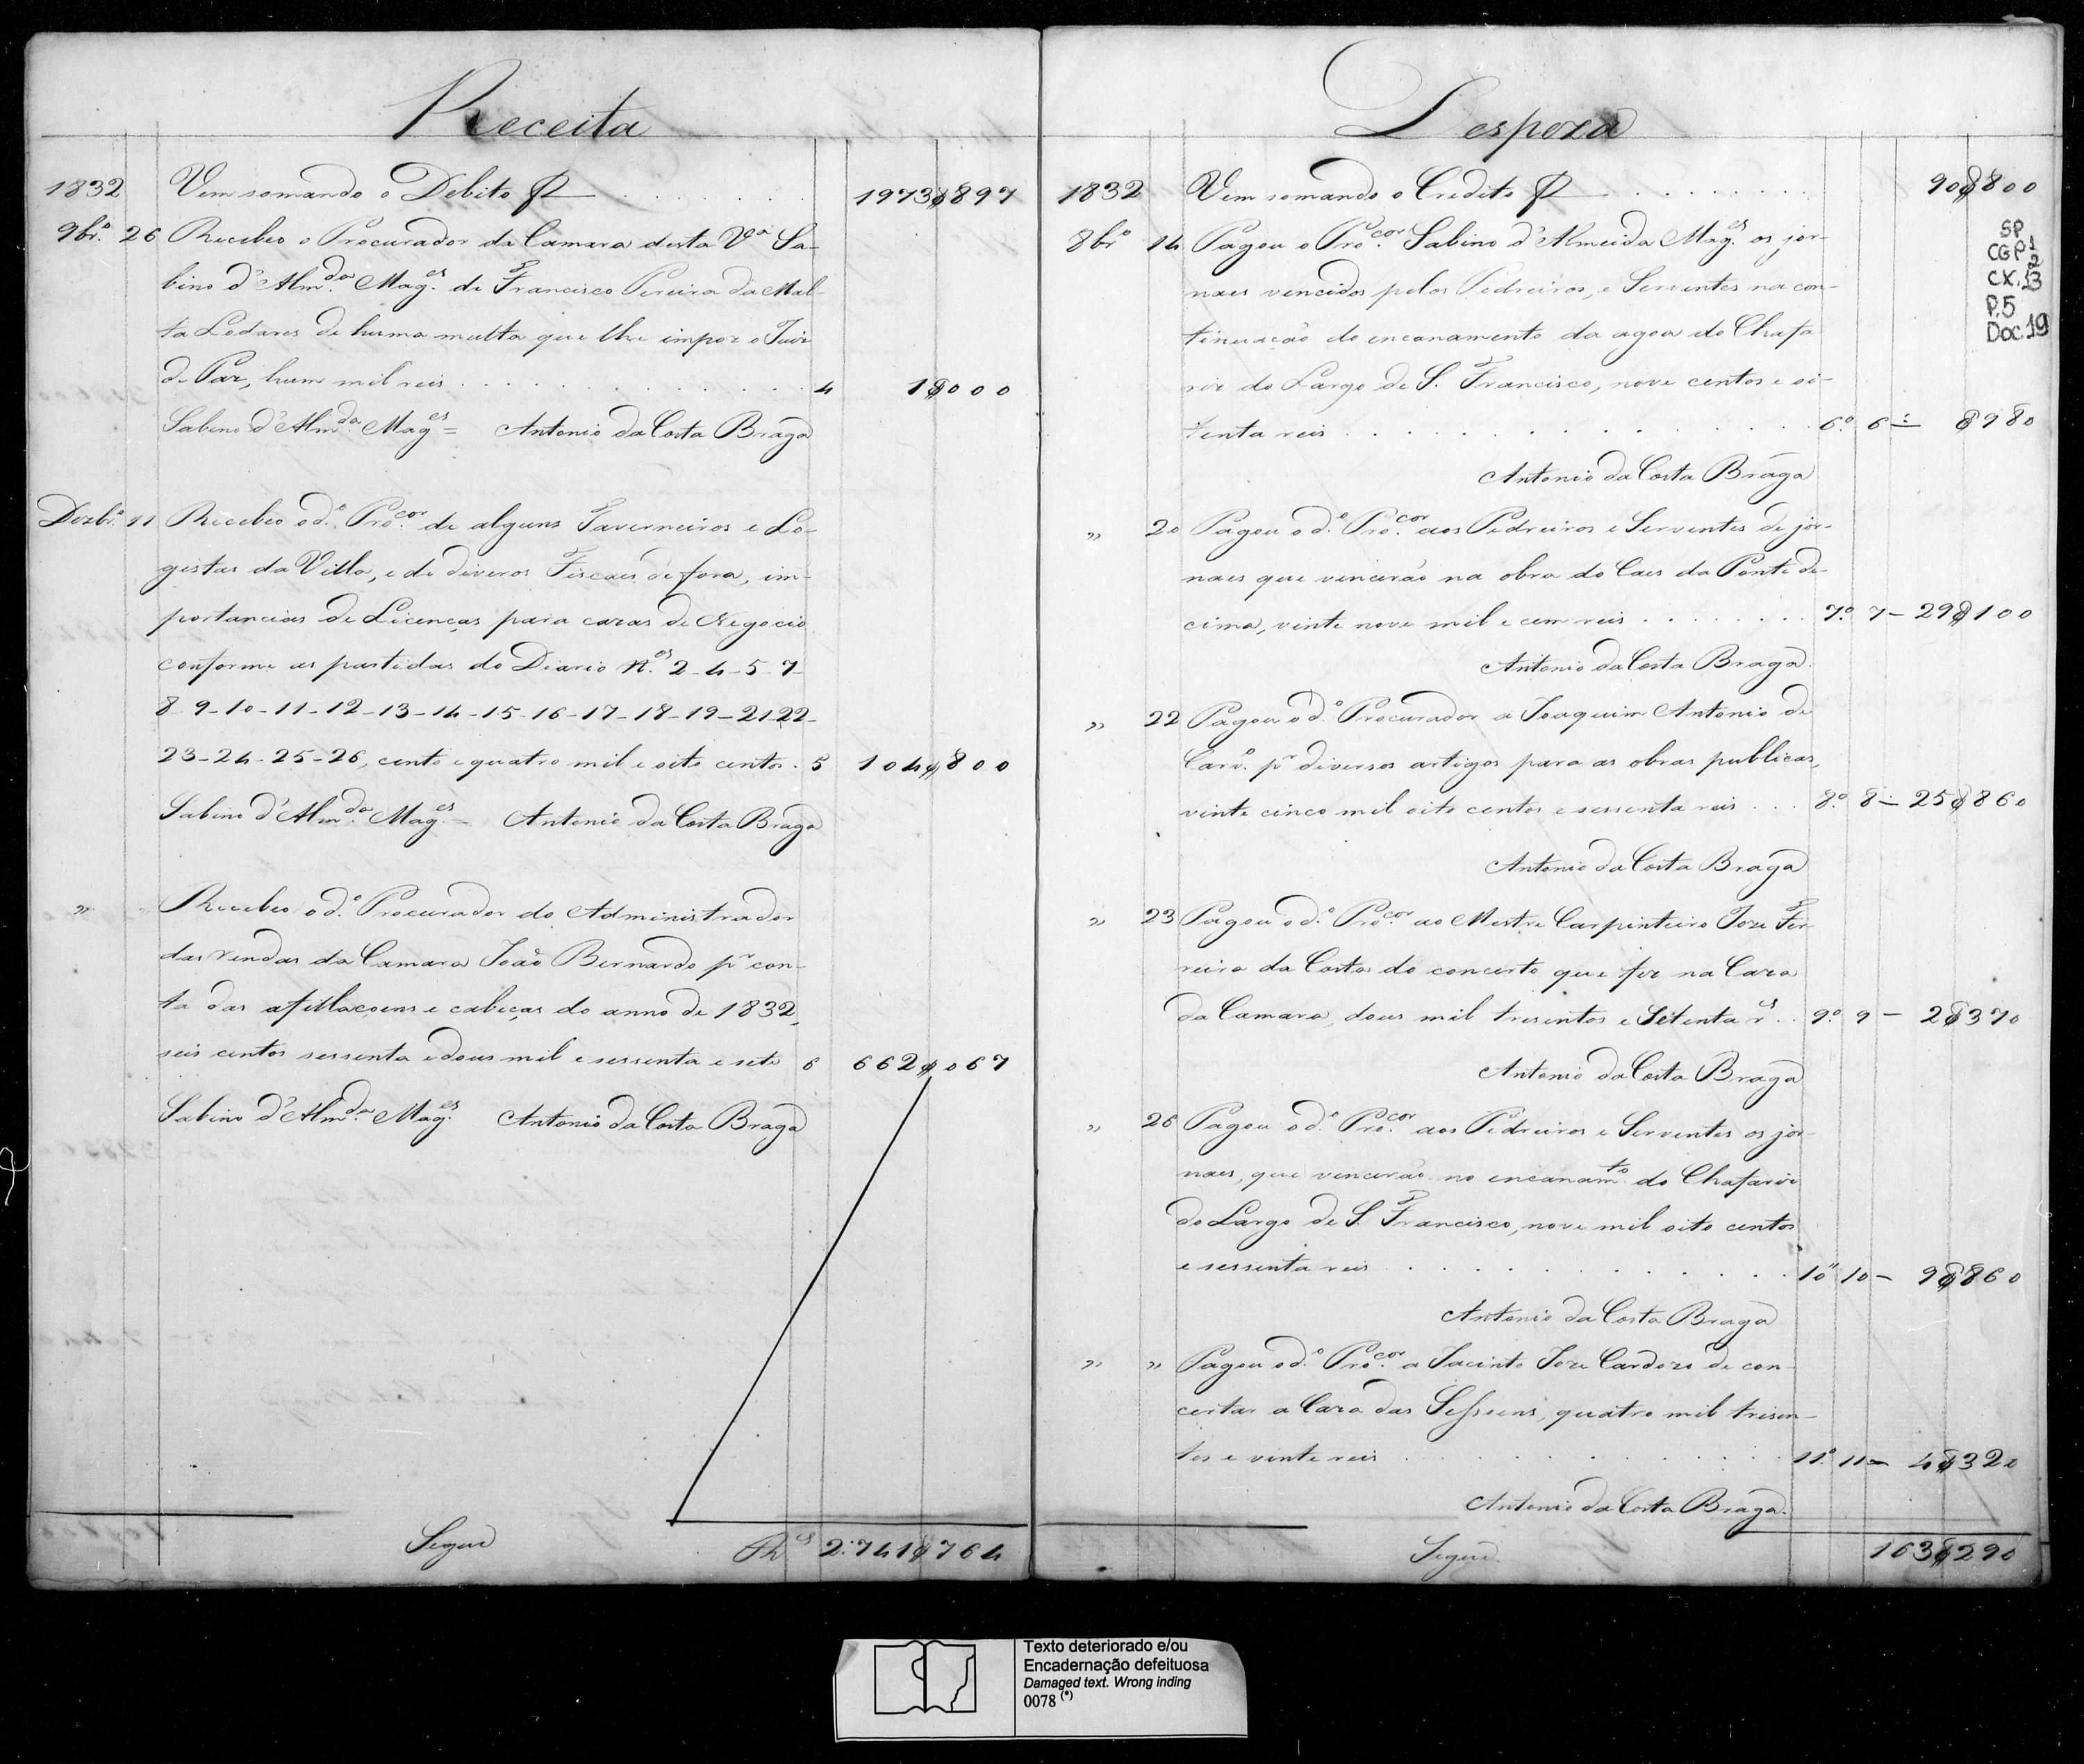 Receita
1832 Vem somando o Debito R 1973$897
9br.º 26 Recebeo o Procurador da Camara desta Vª Sa-
bino d'Alm.da Mag.es de Francisco Pereira da Mal-
ta Ledares de huma multa que lhe impoz o Juiz
de Paz, hum mil reis . . . . 4 1$000
Sabino d'Alm.da Mag.es = Antonio da Costa Braga
Dezbrº 11 Recebeo o d.º Pro.cor de alguns Taverneiros e Lo-
gistas da Villa, e de diveros Fiscaes de fora, im-
portancias de Licenças para cazas de Negocio
conforme as partidas do Diario N.os 2-4-5-7-
8-9-10-11-12-13-14-15-16-17-18-19-21-22-
23-24-25-26, cento e quatro mil e oito centos. 5 104$800
Sabino d'Alm.da Mag.es = Antonio da Costa Braga
" " Recebeo o d.º Procurador do Administrador
das rendas da Camara João Bernardo pr con-
ta das afillacoens e cabeças do anno de 1832,
seis centos sessenta e dous mil e sessenta e sete 6 662$067
Sabino d'Alm.da Mag.es Antonio da Costa Braga
Segue Rs 2:741$764
Despeza
1832 Vem somando o Credito R 90$800
SP
CGP 1
2
CX. 13
P.5
Doc. 19
8brº 14 Pagou o Pro.cor Sabino d'Almeida Mag.es os jor-
naes vencidos pelos Pedreiros, e Serventes na con-
tinuação do encanamento da agoa do Chafa
riz do Largo de S. Francisco, nove centos e oi-
tenta reis . . . . 6.º 6 - $980
Antonio da Costa Braga
" 20 Pagou o d.º Pro.cor aos Pedreiros e Serventes de jor-
naes que vencerão na obra do Caes da Ponte de
cima, vinte nove mil e cem reis . . . . 7.º 7 - 29$100
Antonio da Costa Braga.
" 22 Pagou o d.º Procurador a Joaquim Antonio de
Carv.º pr diversos artigos para as obras publicas,
vinte cinco mil oito centos e sessenta reis . . . 8.º 8 - 25$860
Antonio da Costa Braga
" 23 Pagou o d.º Pro.cor ao Mestre Carpinteiro Joze Fer-
reira da Costa do concerto que fez na Caza
da Camara, dous mil tresentos e Setenta rs . . 9.º 9 - 2$370
Antonio da Costa Braga
" 26 Pagou o d.º Pro.cor aos Pedreiros e Serventes os jor-
naes, que vencerão no encanam.to do Chafariz
do Largo de S. Francisco, nove mil oito centos
e sessenta reis . . . . 10º 10 - 9$860
Antonio da Costa Braga
" " Pagou o d.º Pro.cor a Jacinto Joze Cardozo de con-
certar a Caza das Sessoens, quatro mil trezen-
tos e vinte reis . . . . 11.º 11 - 4$320
Antonio da Costa Braga.
Segue. 163$290
Texto deteriorado e/ou
Encadernação defeituosa
Damaged text. Wrong inding
0078 (*)